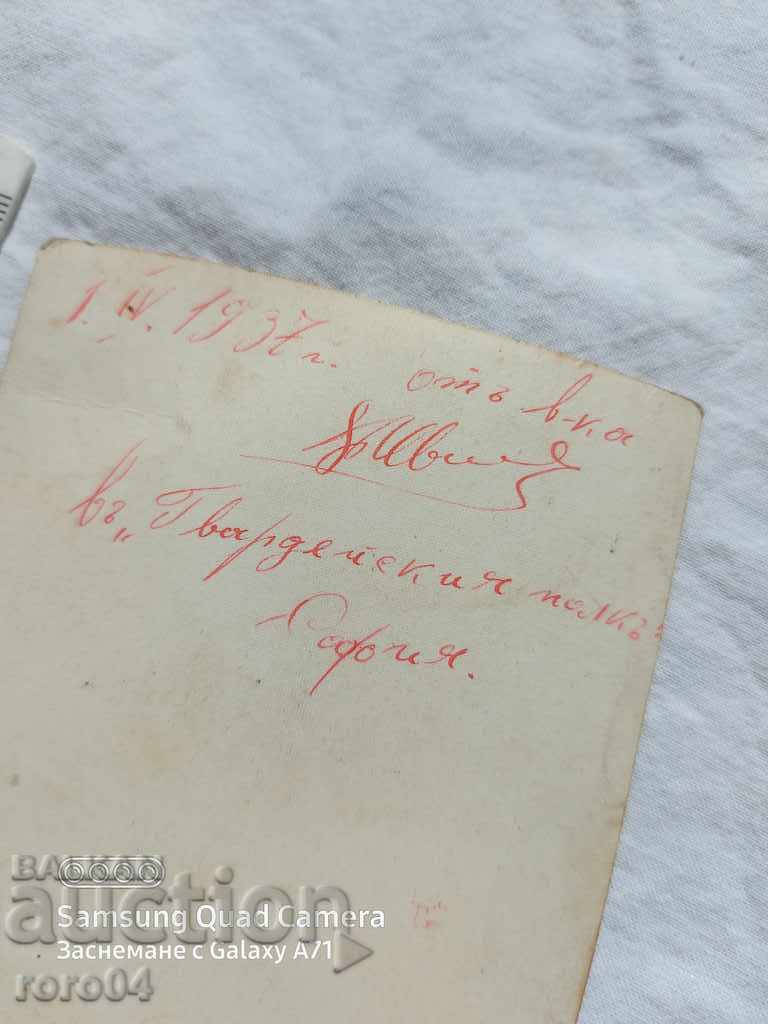 1. IV. 1937 г. отъ в-ка
въ „Гвардейския полкъ"
София.
БАЛКАН
auction
Samsung Quad Camera
Заснемане с Galaxy A71
roro04